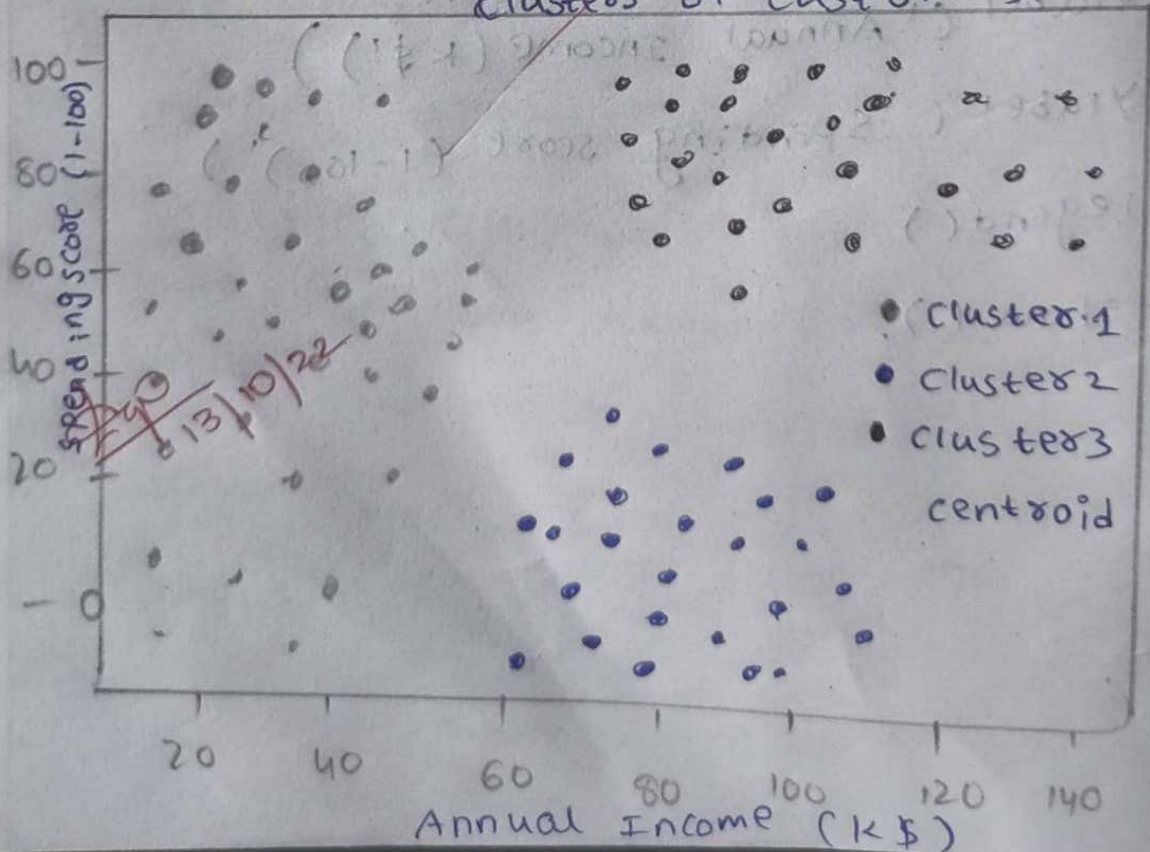 clusters of custo
100
80
60
40
20
- 0
spending score (1-100)
13/10/22
cluster.1
cluster2
cluster3
centroid
20 40 60 80 100 120 140
Annual Income (K$)